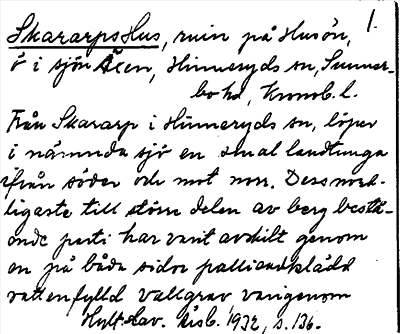 1.
Skararps Hus, ruin på Husön,
ö i sjön Älen, Hinneryds sn, Sunner-
bo hd, Kronob. l.
Från Skararp i Hinneryds sn, löper
i nämnda sjö en smal landtunga
ifrån söder och mot norr. Dess nord-
ligaste till större delen av berg bestå-
ende parti har varit avskilt genom
en på båda sidor pallisadklädd
vattenfylld vallgrav varigenom
Hylt-Cav. Årsb. 1932, s. 136.